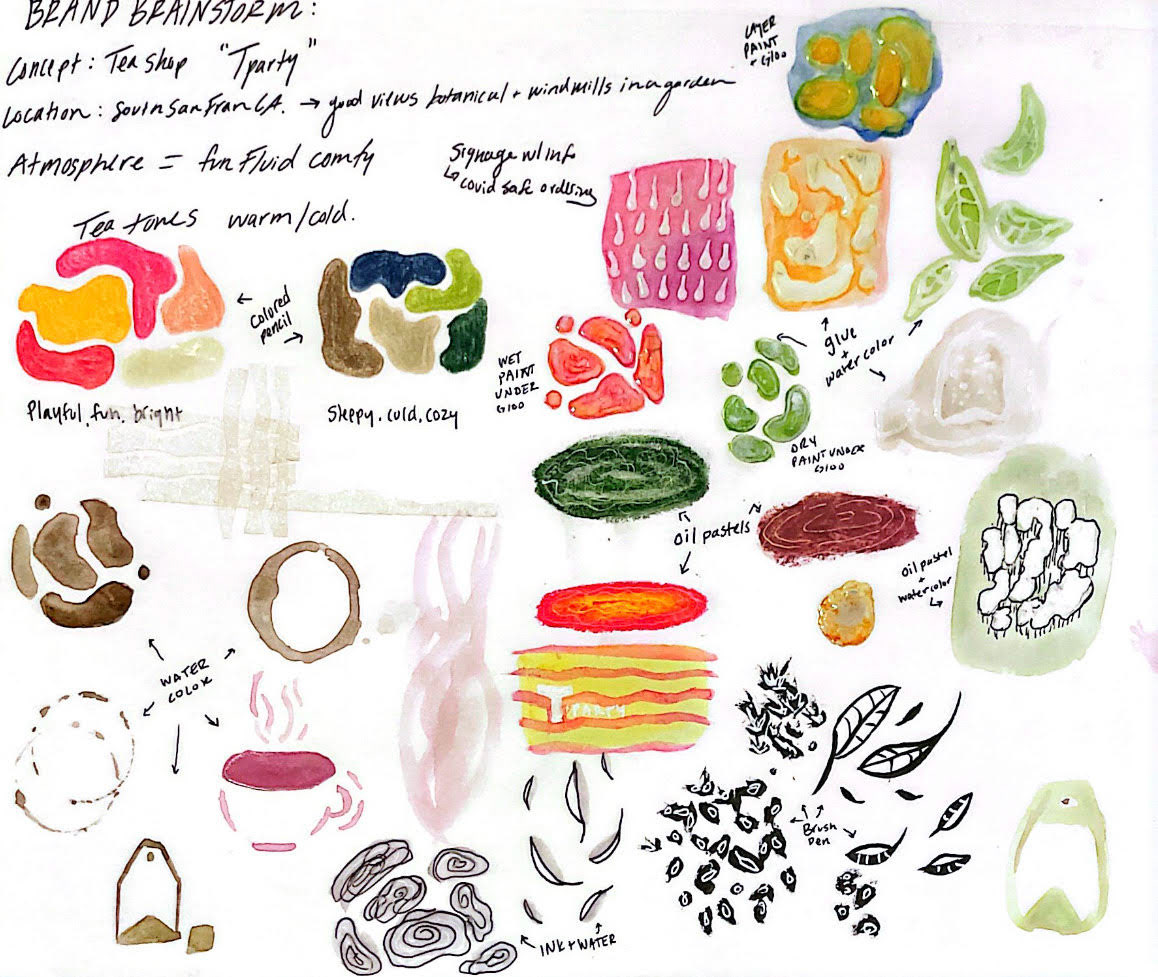 BRAND BRAINSTORM:
Concept: Tea Shop "Tparty"
Location: South San Fran CA. → good views botanical + windmills in a garden
Atmosphere = fun Fluid comfy
Signage w/ info
↳ covid safe ordering
Tea tones warm/cold.
LAYER
PAINT
+ GLOO
Colored
pencil
Playful, fun, bright
Sleepy. cold. cozy
WET
PAINT
UNDER
GLOO
glue
+
watercolor
DRY
PAINT UNDER
GLOO
oil pastels
oil pastel
+
watercolor
WATER
COLOR
T PARTY
Brush
pen
INK + WATER